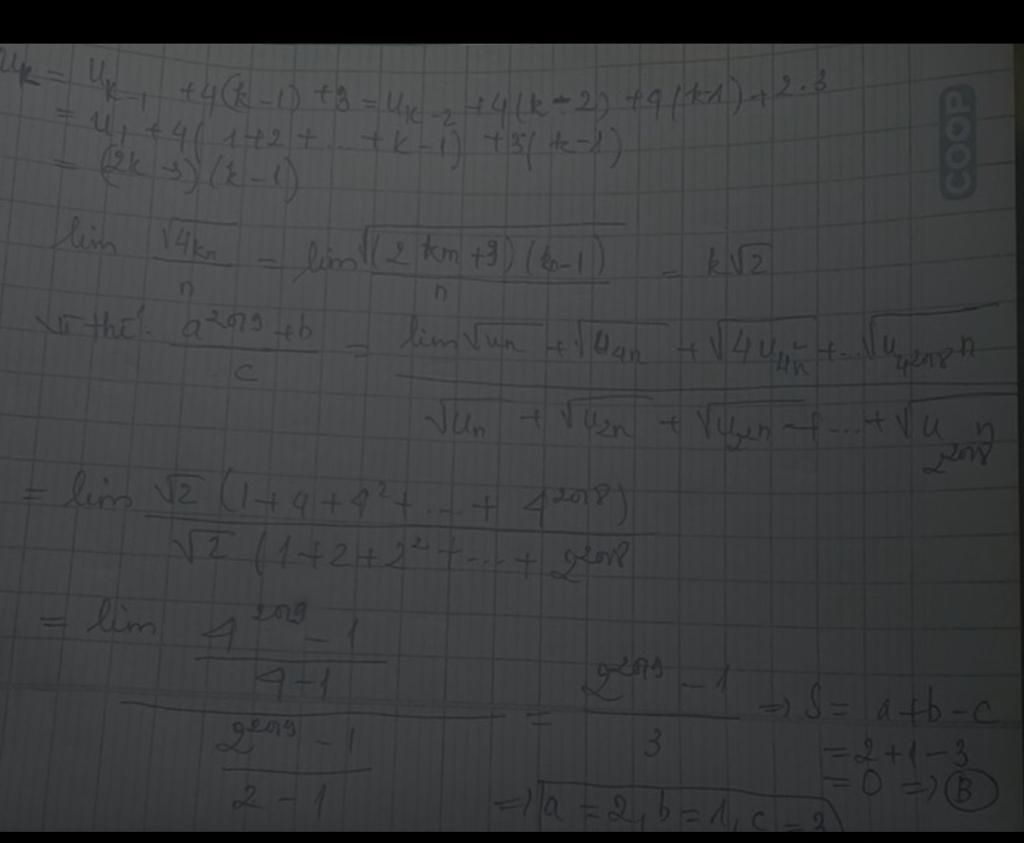 u_k = u_{k-1} + 4(k-1) + 3 = u_{k-2} + 4(k-2) + 4(k-1) + 2.3
= u_1 + 4(1+2+...+k-1) + 3(k-1)
= (2k 3)(k-1)
COOP
lim \frac{\sqrt{4kn}}{n} = lim \frac{\sqrt{(2kn+3)(kn-1)}}{n} = k\sqrt{2}
Vì thế: \frac{a^{2019}+b}{c} = \frac{lim \sqrt{u_n} + \sqrt{u_{4n}} + \sqrt{4u_{4^2n}} + ... \sqrt{u_{4^{2018}n}}}{\sqrt{u_n} + \sqrt{u_{2n}} + \sqrt{u_{2^2n}} + ... + \sqrt{u_{2^{2018}n}}}
= lim \frac{\sqrt{2}(1+4+4^2+...+4^{2018})}{\sqrt{2}(1+2+2^2+...+2^{2018}}
= lim \frac{\frac{4^{2019}-1}{4-1}}{\frac{2^{2019}-1}{2-1}} = \frac{2^{2019}-1}{3} => S = a+b-c
= 2+1-3
= 0 => B
=> a = 2, b = 1, c = 3